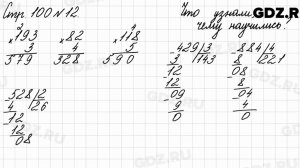 Стр 100 N 12.
Что узнали,
чему научились?
GDZ.RU
193
3
579
82
4
328
118
5
590
429|3
3 143
12
12
09
9
0
884|4
8 221
08
8
04
4
0
528|2
4 26
12
12
08